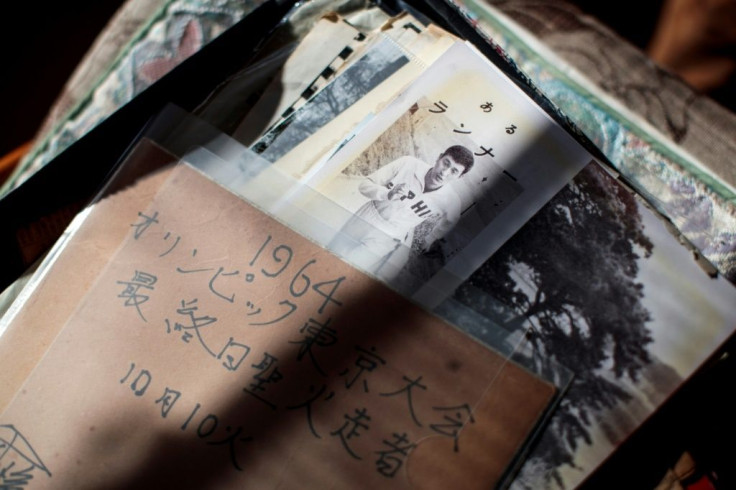 ある
ランナー
1964
オリンピック東京大会
最終日聖火走者
10月10火